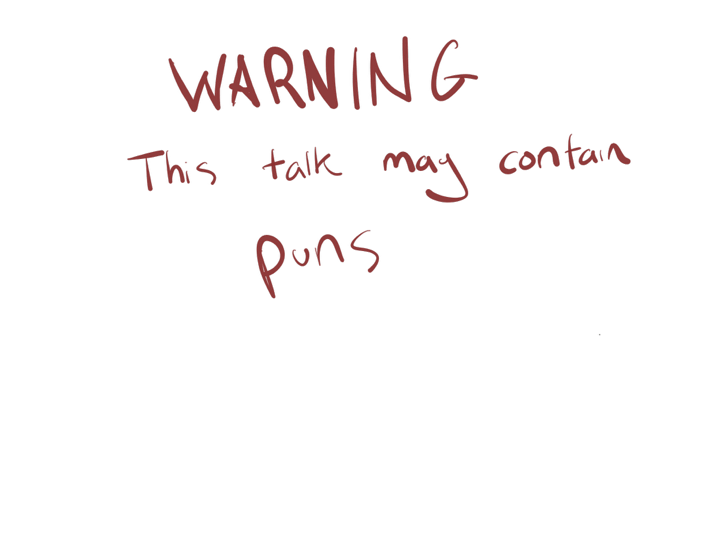 WARNING
This talk may contain
puns